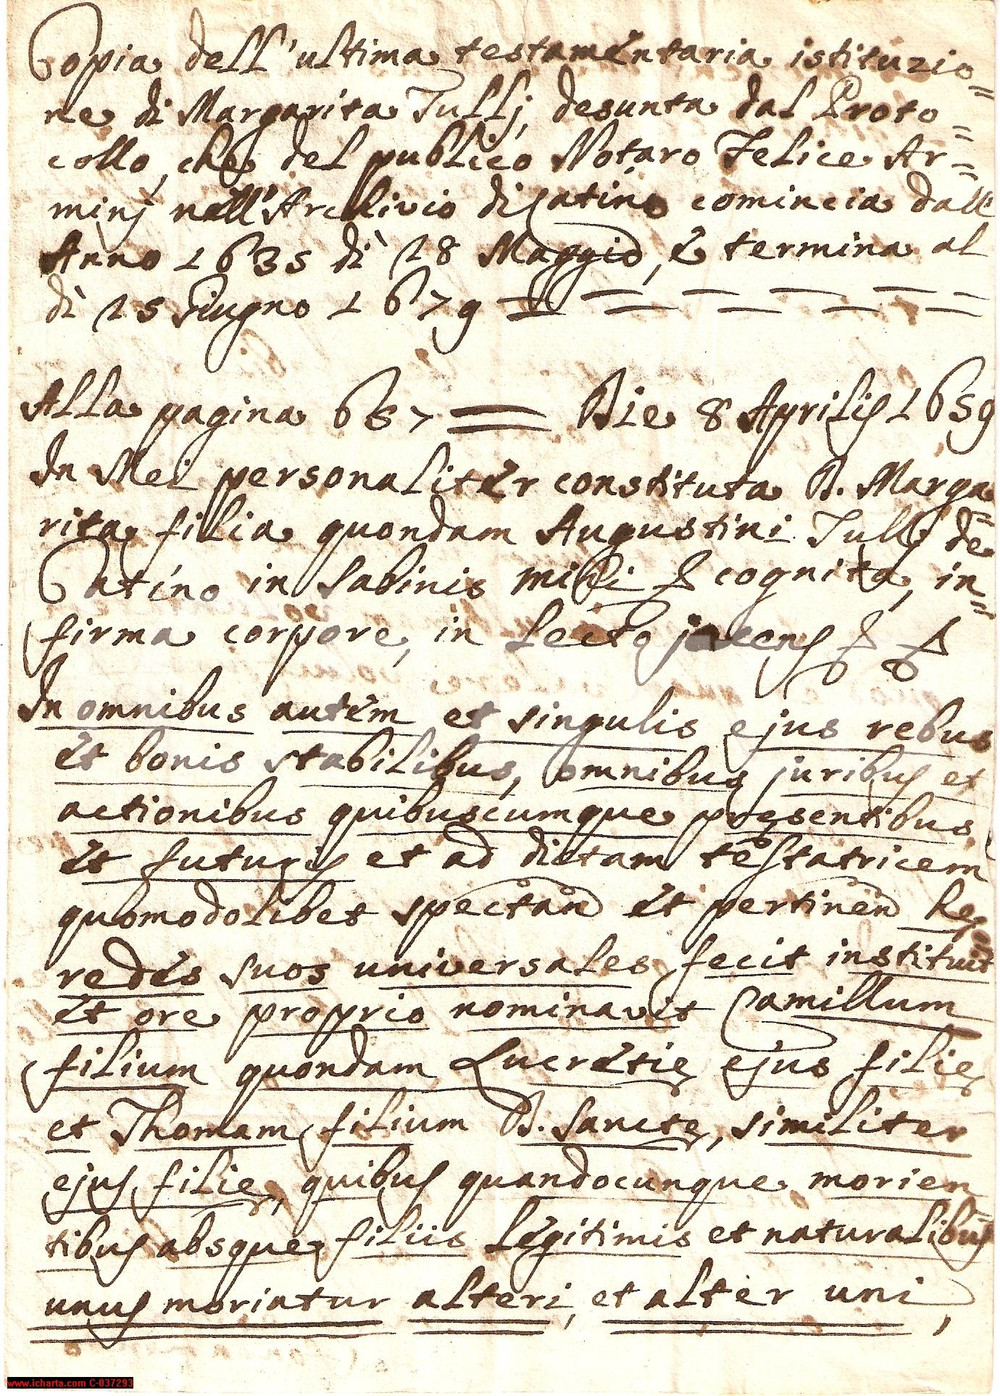 Copia dell'ultima testamentaria istituzio=
ne di Margarita Tullj, desunta dal Proto=
collo, che del publico Notaro Felice Ar=
minj nell'Archivio di Catino comincia dall'
Anno 1635 dì 28 Maggio, e termina al
dì 25 Giugno 1679 = = = = = =
Alla pagina 687 = Die 8 Aprilis 1659
In Mei personaliter constituta D. Marga=
rita filia quondam Augustini Tullj de
Catino in Sabinis mihi cognita, in=
firma corpore, in lecto jacens
In omnibus autem et singulis ejus rebus
et bonis stabilibus, omnibus juribus et
actionibus quibuscumque pręsentibus
et futuris et ad dictam testatricem
quomodolibet spectan et pertinen He=
redes suos universales fecit instituit
et ore proprio nominavit Camillum
filium quondam Lucretię ejus filię
et Thomam filium D. Sanctę, similiter
ejus filię, quibus quandocunque morien=
tibus absque filiis legitimis et naturalibus
unus moriatur alteri, et alter uni,
www.icharta.com C-037293